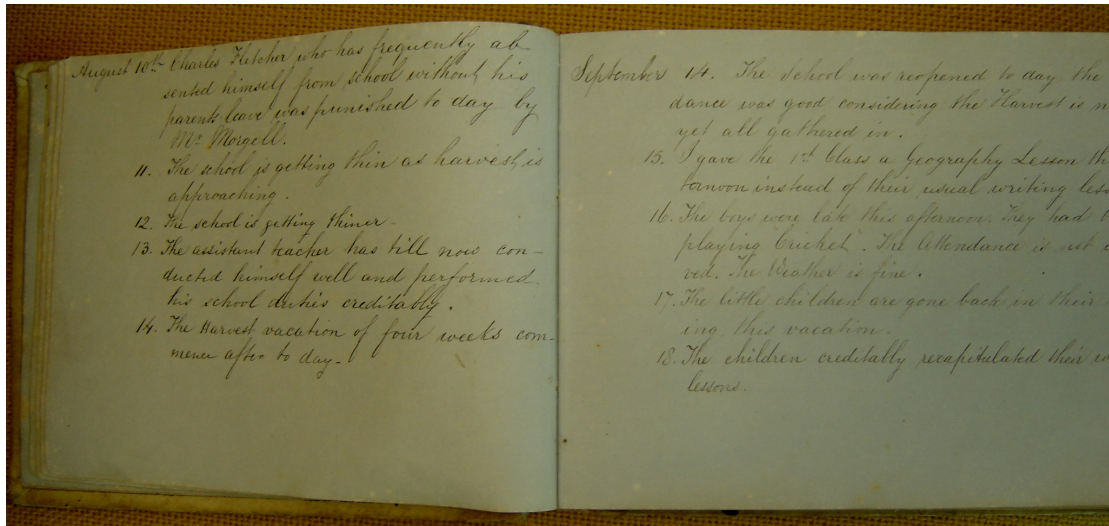 August 10th Charles Fletcher who has frequently ab
sented himself from school without his
parents leave was punished to day by
Mr Morgell.
11. The school is getting thin as harvest is
approaching.
12. The school is getting thiner -
13. The assistant teacher has till now con-
ducted himself well and performed
his school duties creditably.
14. The Harvest vacation of four weeks com-
mence after to day -
September 14. The School was reopened to day the
dance was good considering the Harvest is
yet all gathered in.
15. I gave the 1st Class a Geography Lesson
ternoon instead of their usual writing
16. The boys were late this afternoon. They had
playing "Cricket". The Attendance is not
ved. The Weather is fine.
17. The little children are gone back in their
ing this vacation.
18. The children creditably recapitulated their
lessons.